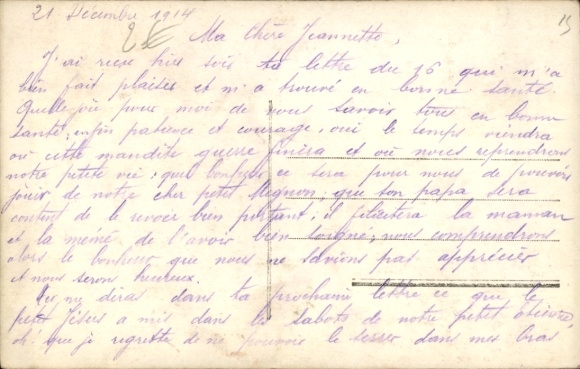 21 Décembre 1914
15
Ma Chère Jeannette,
J'ai reçu hier soir ta lettre du 16 qui m'a
bien fait plaisir et m'a trouvé en bonne santé.
Quelle joie pour moi de vous savoir tous en bonne
santé; enfin patience et courage, oui le temps viendra
où cette maudite guerre finira et où nous reprendrons
notre petite vie; quel bonheur ce sera pour nous de pouvoir
jouir de notre cher petit Mignon, que son papa sera
content de le revoir bien portant; il félicitera la maman
et la mémé de l'avoir bien soigné, nous comprendrons
alors le bonheur que nous ne savions pas apprécier
et nous serons heureux.
Tu me diras dans ta prochaine lettre ce que le
petit Jésus a mis dans les sabots de notre petit
oh! que je regrette de ne pouvoir le serrer dans mes bras